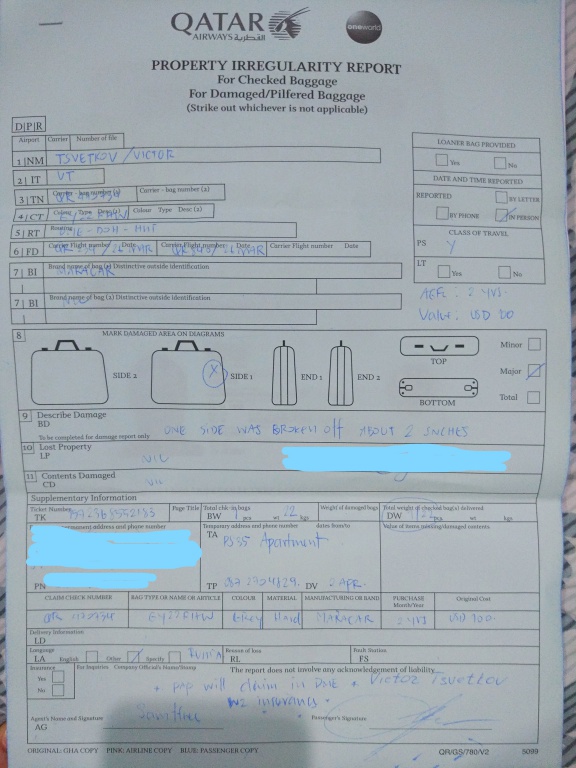 QATAR
AIRWAYS القطرية
oneworld
PROPERTY IRREGULARITY REPORT
For Checked Baggage
For Damaged/Pilfered Baggage
(Strike out whichever is not applicable)
D|P|R
Airport Carrier Number of file
1 NM TSVETKOV/VICTOR
2 IT VT
3 TN Carrier - bag number (1) Carrier - bag number (2)
4 CT Colour Type Desc(1) Colour Type Desc (2)
5 RT Routing
6 FD Carrier Flight number Date Carrier Flight number Date Carrier Flight number Date
7 BI Brand name of bag (1) Distinctive outside identification
MARACAR
7 BI Brand name of bag (2) Distinctive outside identification
LOANER BAG PROVIDED
Yes No
DATE AND TIME REPORTED
REPORTED BY LETTER
BY PHONE IN PERSON
CLASS OF TRAVEL
PS Y
LT
Yes No
AGE: 2 YRS.
Value: USD
8 MARK DAMAGED AREA ON DIAGRAMS
SIDE 2 X SIDE 1 END 1 END 2 TOP
BOTTOM
Minor
Major
Total
9 Describe Damage
BD ONE SIDE WAS BROKEN Off ABOUT 2 INCHES
To be completed for damage report only
10 Lost Property
LP NIL
11 Contents Damaged
CD NIL
Supplementary Information
Ticket Number Page Title Total chk. in bags Weight if damaged bags Total weight of checked bag(s) delivered
TK BW 1 pcs wt 22 kgs DW pcs wt kgs
permanent address and phone number Temporary address and phone number dates from/to Value of items missing/damaged contents
TA PS35 Apartment
PN TP 087 2704829. DV 2 APR.
CLAIM CHECK NUMBER BAG TYPE OR NAME OR ARTICLE COLOUR MATERIAL MANUFACTURING OR BAND PURCHASE Month/Year Original Cost
GY22RHW Grey Hard MARACAR 2 YRS USD 100.
Delivery Information
LD
Language Reason of loss Fault Station
LA English Other Specify RUSSIA RL FS
Insurance For Inquiries Company Official's Name/Stamp The report does not involve any acknowledgement of liability
Yes
No
+ pap will claim in DME * Victor Tsvetkov
insurance.
Agent's Name and Signature Passenger's Signature
AG
ORIGINAL: GHA COPY PINK: AIRLINE COPY BLUE: PASSENGER COPY QR/GS/780/V2 5099